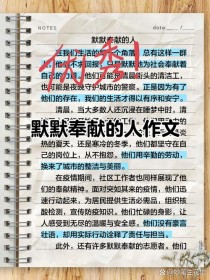 NOTES
date
默默奉献的人
在我们生活的 个角落,总有这样一群
他们 不求回报,只是默默地为社会奉献着
自己的 。他们可能是清晨街头的清洁工,
也可能是夜晚守护城市的警察,正是因为有了
他们的存在,我们的生活才得以有序和安宁。
优秀!
清晨,当大多数人还沉浸在睡梦中时,清
默默奉献的人作文
热的夏天,还是寒冷的冬季,他们都坚守在自
己的岗位上,从不抱怨。他们用辛勤的劳动,
换来了城市的整洁与美丽。
在疫情期间,社区工作者也同样展现了他
们的奉献精神。面对突如其来的疫情,他们迅
速行动起来,为居民提供生活必需品,组织核
酸检测,宣传防疫知识。他们忙碌的身影,让
人感受到无尽的温暖与安全感。他们没有豪言
壮语,却用实际行动诠释了责任与担当。
此外,还有许多默默奉献的志愿者,他们